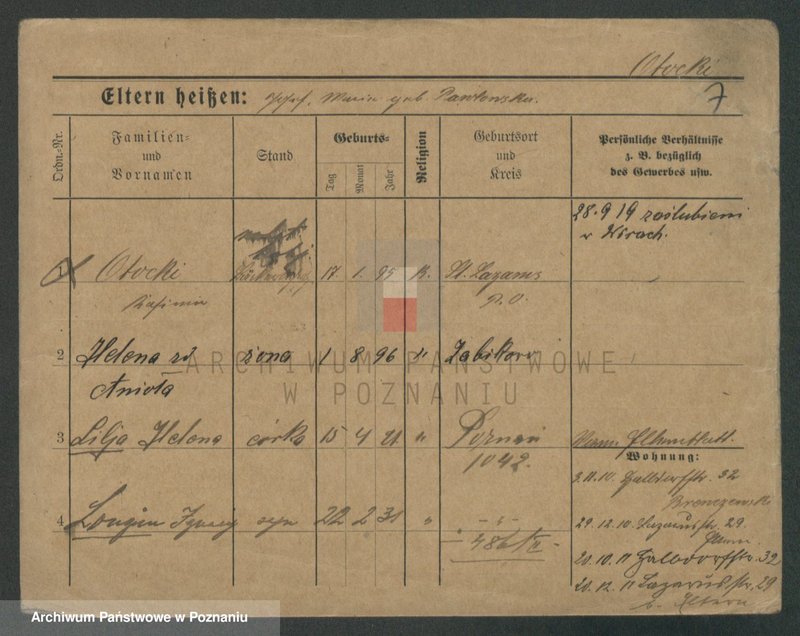 Otocki
7
Eltern heißen: Josef, Maria geb. Pawłowska.
Ordn.-Nr.
Familien- und Vornamen
Stand
Geburts-
Tag
Monat
Jahr
Religion
Geburtsort und Kreis
Persönliche Verhältnisse z. B. bezüglich des Gewerbes usw.
28.9 19 zaślubieni
w Wirach.
Otocki 17 1 95 k. St. Lazarus
Kasimir P. O.
2 Helena zd żona 1 8 96 " Żabikowo
Anioła
3 Lilja Helena córka 15 4 21 " Poznań
1042.
Wohnung:
3.11.10. Halldorfstr. 32
4 Longin Ignacy syn 22 2 31 " - " -
486/II
29.12.10 Lazarusstr. 29
Eltern
20.10.11 Halbdorfstr. 32
20.12.11 Lazarusstr. 29
b. Eltern
ARCHIWUM PAŃSTWOWE
W POZNANIU
Archiwum Państwowe w Poznaniu